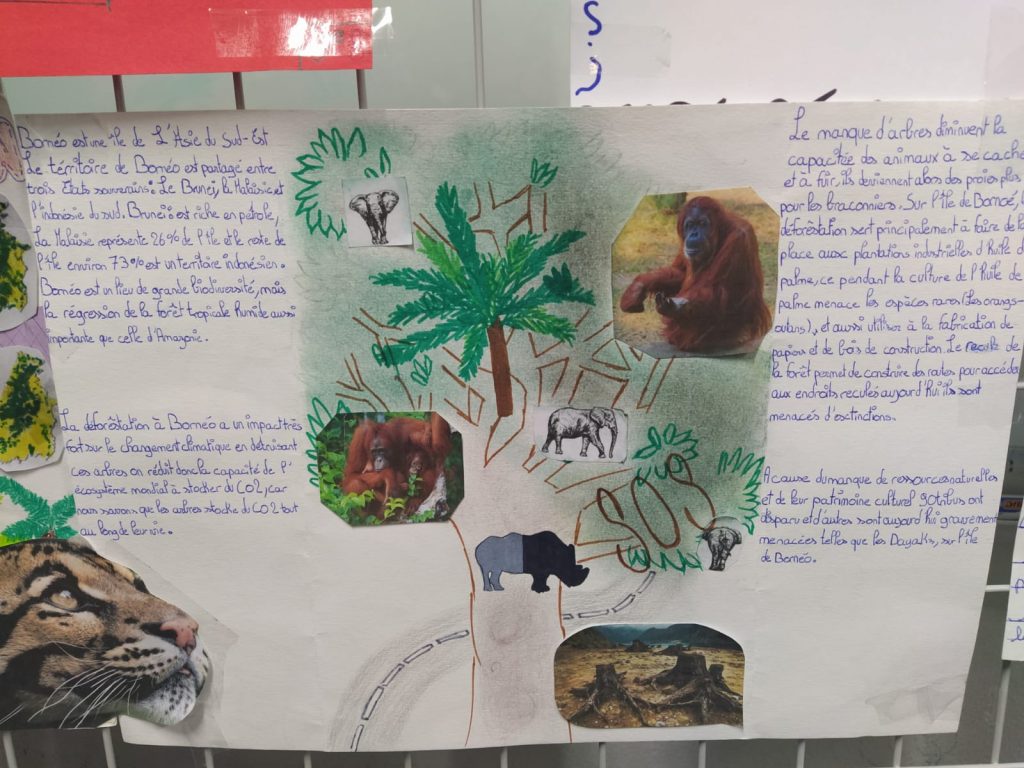 Bornéo est une île de L'Asie du Sud-Est
Le térritoire de Bornéo est partagé entre
trois États souverains: Le Brunei, la Malaisie et
l'indonésie du sud. Brunei: est riche en petrole,
La Malaisie représente 26% de l'île et le reste de
l'île environ 73% est un territoire indonésien.
Bornéo est un lieu de grande biodiversité, mais
la régression de la forêt tropicale humide aussi
importante que celle d'Amazonie.
La déforêstation à Bornéo a un impact très
fort sur le changement climatique en détruisant
ces arbres on réduit donc la capacité de l'
écosystème mondial à stocker du CO2, car
nous savons que les arbres stocke du CO2 tout
au long de leur vie.
SOS
Le manque d'arbres diminuent la
capacitée des animaux à se cache
et à fuir, ils deviennent alors des proies plus
pour les braconniers. Sur l'île de Bornéo,
déforestation sert principalement à faire de la
place aux plantations industrielles d'huile d
palme, ce pendant la culture de l'huile de
palme menace les espèces rares (les orangs-
outans), et aussi utiliser à la fabrication de
papiers et de bois de construction. Le recule de
la forêt permet de construire des routes pour accéder
aux endroits reculés aujourd'hui ils sont
menacés d'exctinctions.
A cause du manque de ressources naturelles
et de leur patrimoine culturel 90 tribus ont
disparu et d'autres sont aujourd'hui gravement
menacées telles que les Dayaks, sur l'île
de Bornéo.